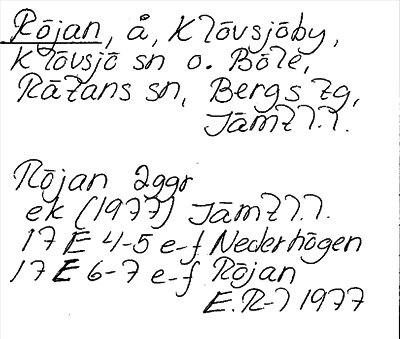 Röjan, å, Klövsjöby,
Klövsjö sn o. Böle,
Rätans sn, Bergs tg,
Jämtl.
Röjan 2ggr
ek (1977) Jämtl.
17 E 4-5 e-f Nederhögen
17 E 6-7 e-f Röjan
E.R-l 1977